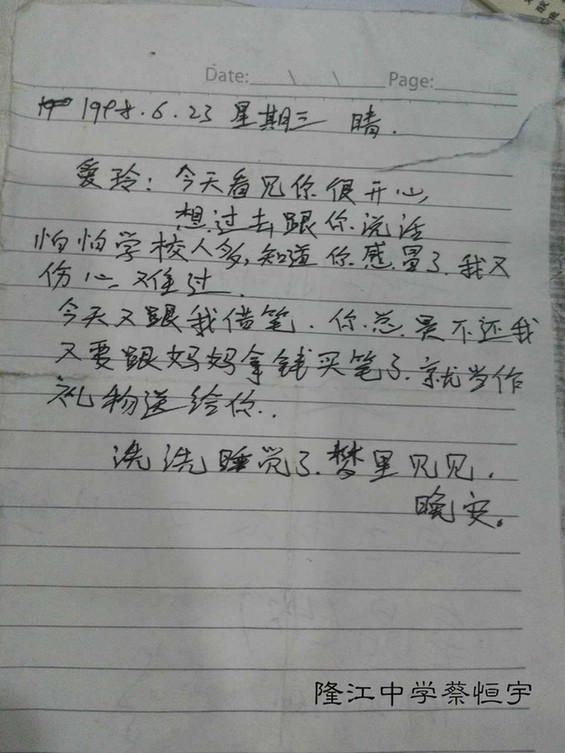 Date:____\__\____ Page:________
1998.6.23 星期三 晴.
爱玲：今天看见你很开心,
想过去跟你说话
怕怕学校人多,知道你感冒了.我又
伤心又难过.
今天又跟我借笔.你总是不还我
又要跟妈妈拿钱买笔了.就当作
礼物送给你..
洗洗睡觉了.梦里见见.
晚安。
隆江中学蔡恒宇